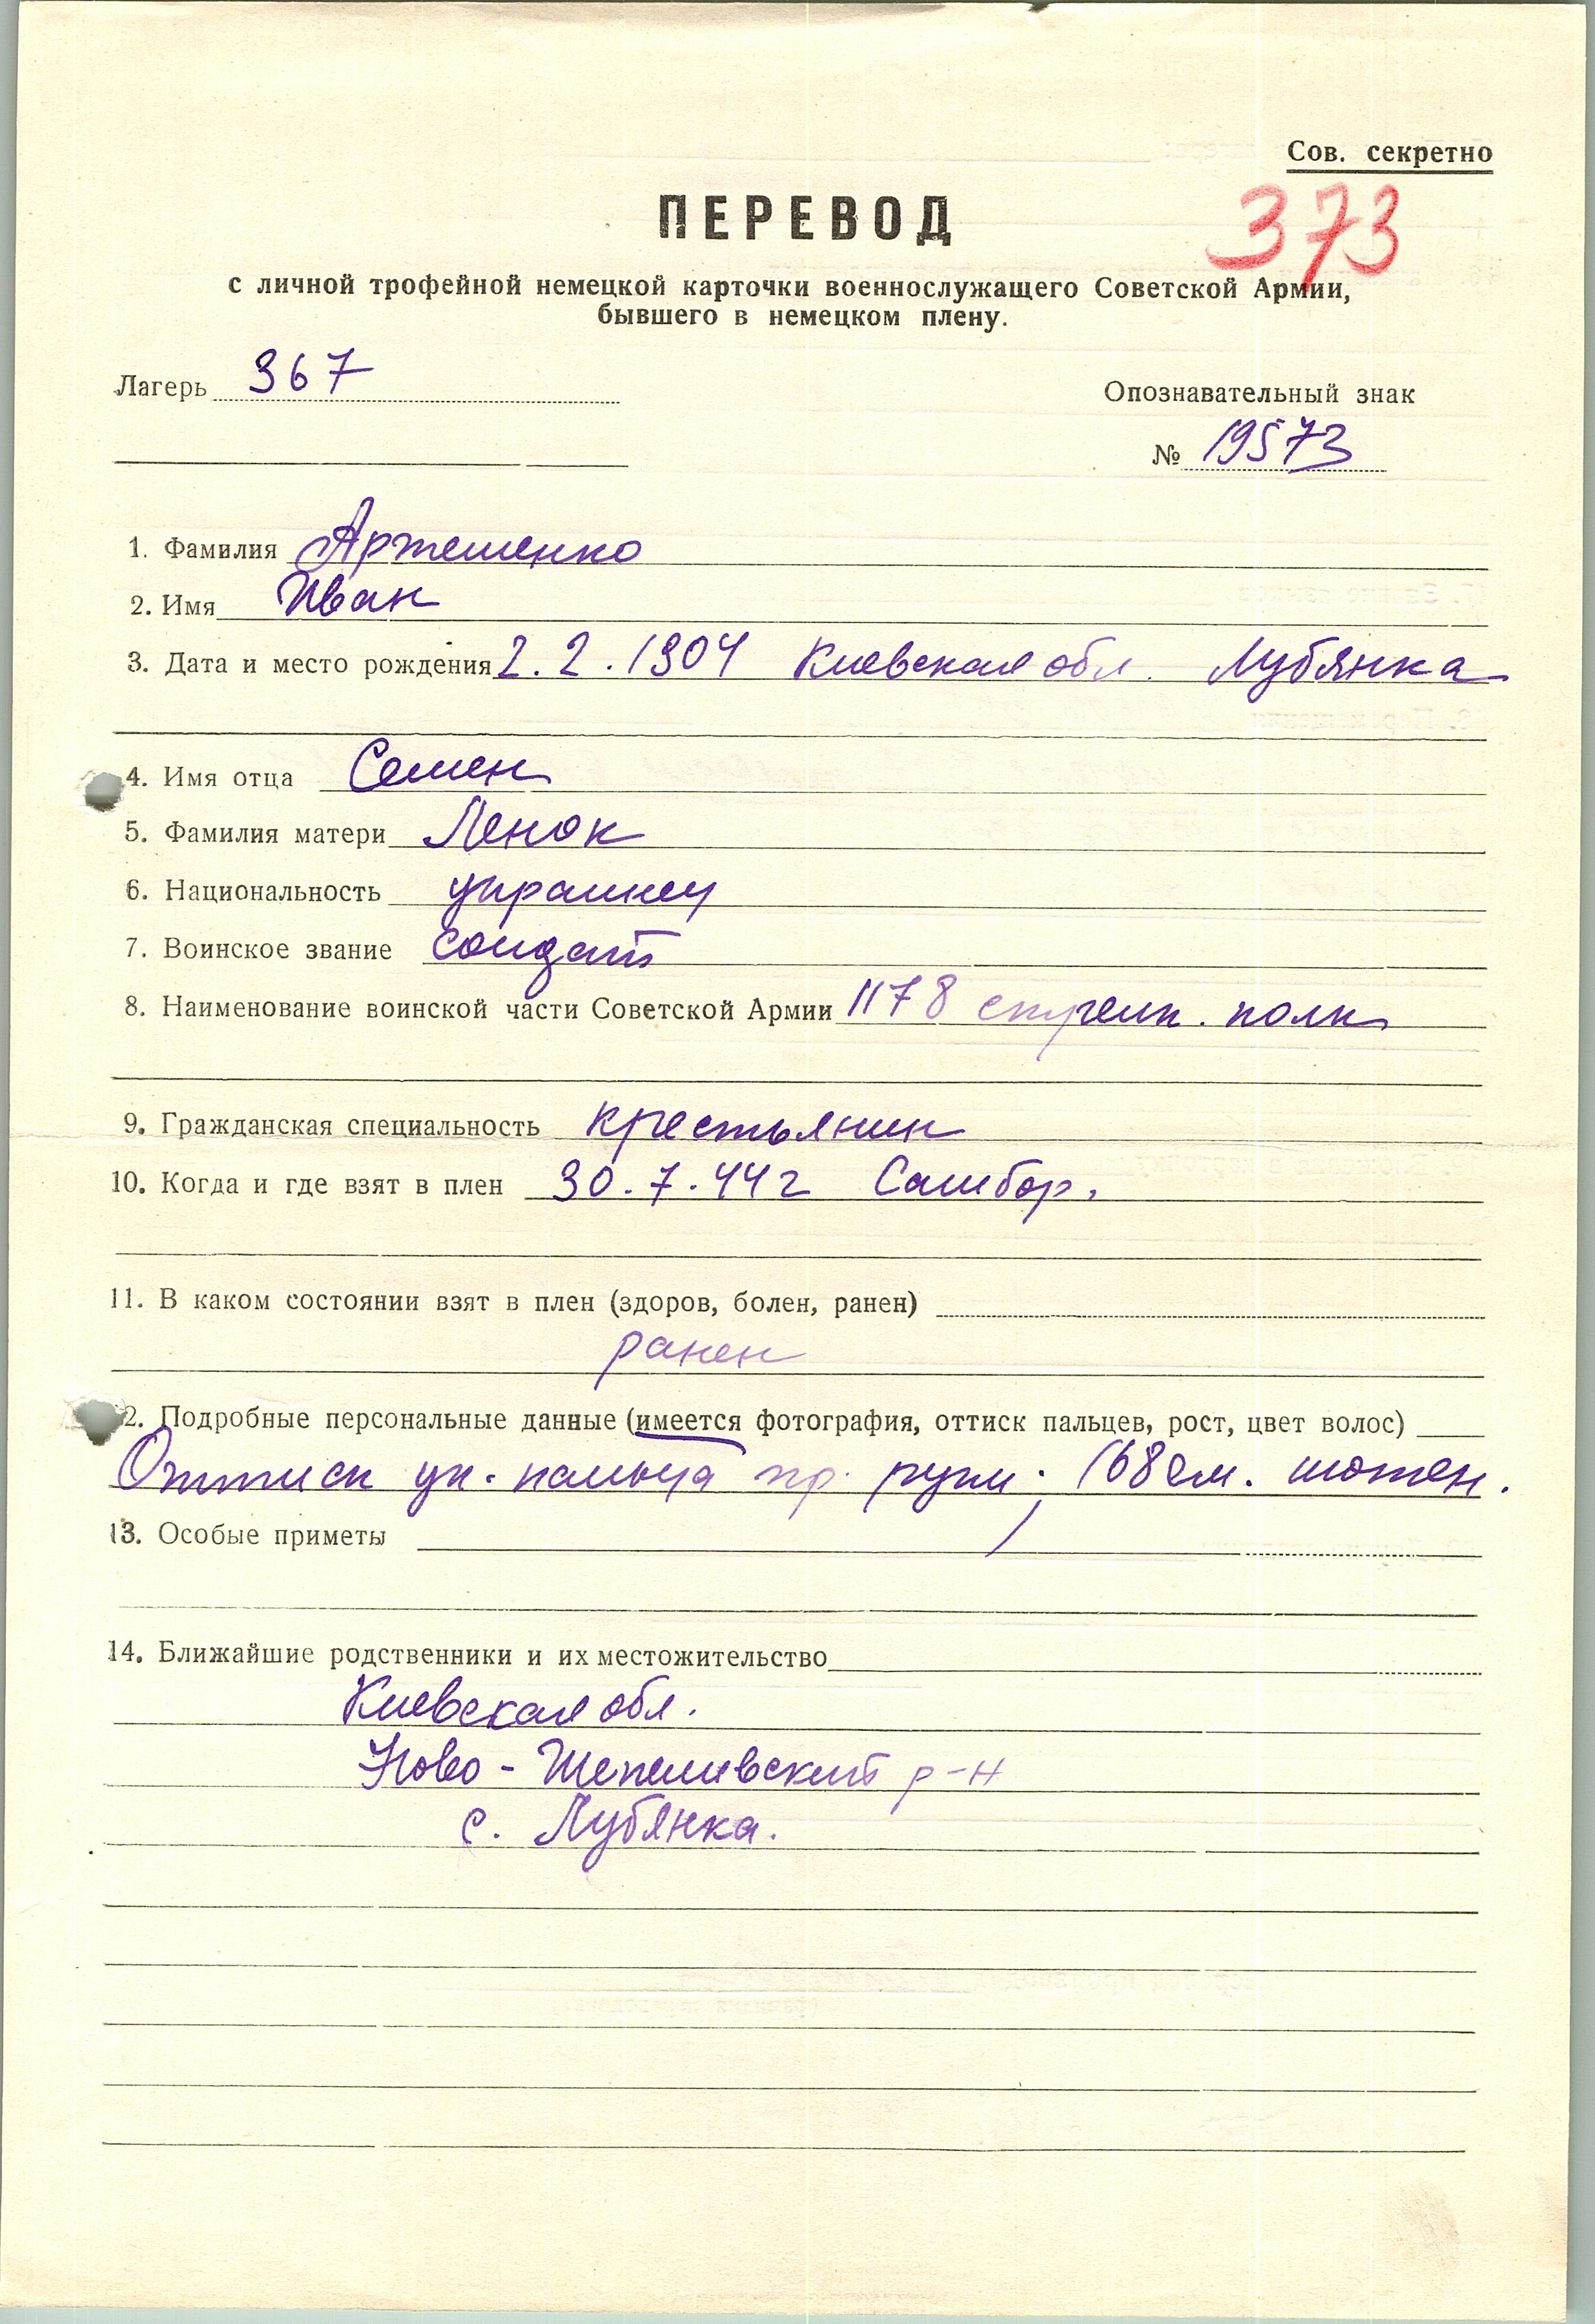 Сов. секретно
ПЕРЕВОД
373
с личной трофейной немецкой карточки военнослужащего Советской Армии,
бывшего в немецком плену.
Лагерь 367
Опознавательный знак
№ 19573
1. Фамилия Артешенко
2. Имя Иван
3. Дата и место рождения 2.2.1904 Киевская обл. Лубянка
4. Имя отца Семен
5. Фамилия матери Ленок
6. Национальность украинец
7. Воинское звание солдат
8. Наименование воинской части Советской Армии 1178 стрелк. полк
9. Гражданская специальность крестьянин
10. Когда и где взят в плен 30.7.44г Самбор.
11. В каком состоянии взят в плен (здоров, болен, ранен)
ранен
12. Подробные персональные данные (имеется фотография, оттиск пальцев, рост, цвет волос)
Оттиск ук. пальца пр. руки; 168см. шатен.
13. Особые приметы
14. Ближайшие родственники и их местожительство
Киевская обл.
Ново-Шепеливский р-н
с. Лубянка.